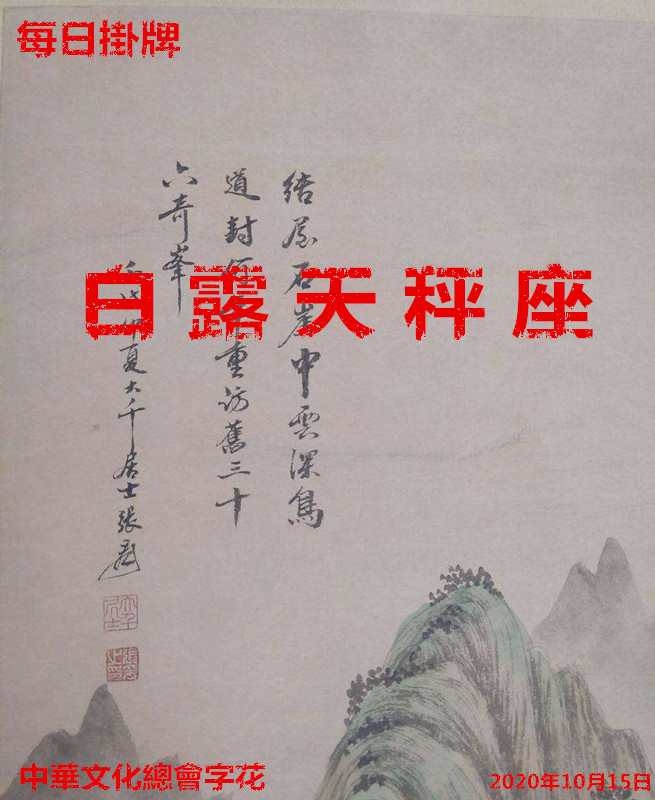 每日掛牌
白露天秤座
結屋石崖中雲深鳥
道封何重訪舊三十
六奇峯
仲夏大千居士張爰
中華文化總會字花
2020年10月15日